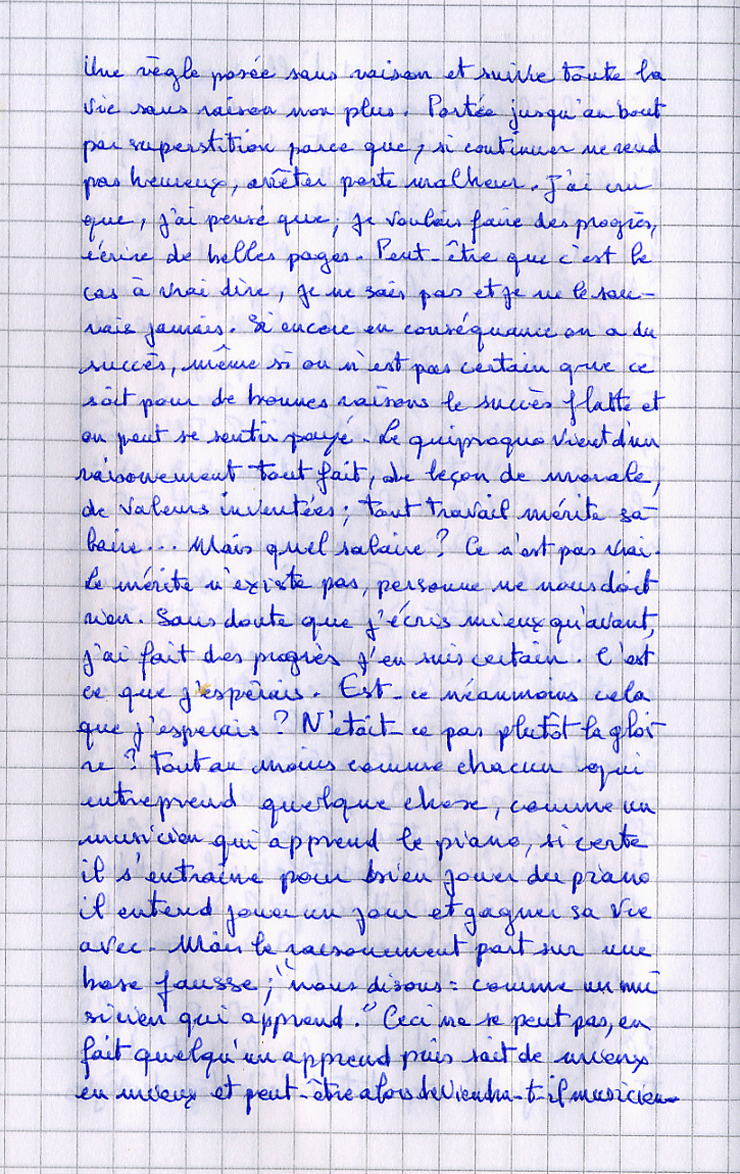 Une règle posée sans raison et suivie toute la
vie sans raison non plus. Portée jusqu'au bout
par superstition parce que, si continuer ne rend
pas heureux, arrêter porte malheur. J'ai cru
que, j'ai pensé que, je voulais faire des progrès,
écrire de belles pages. Peut-être que c'est le
cas à vrai dire, je ne sais pas et je ne le sau-
rais jamais. Si encore en conséquence on a du
succès, même si on n'est pas certain que ce
soit pour de bonnes raisons le succès flatte et
on peut se sentir payé. Le quiproquo vient d'un
raisonnement tout fait, de leçon de morale,
de valeurs inventées; tout travail mérite sa
laire... Mais quel salaire? Ce n'est pas vrai.
Le mérite n'existe pas, personne ne nous doit
rien. Sans doute que j'écris mieux qu'avant,
j'ai fait des progrès j'en suis certain. C'est
ce que j'espérais. Est-ce néanmoins cela
que j'esperais? N'était-ce pas plutôt la gloi
re? Tout au moins comme chacun qui
entreprend quelque chose, comme un
musicien qui apprend le piano, si certe
il s'entraîne pour bien jouer du piano
il entend jouer un jour et gagner sa vie
avec. Mais le raisonnement part sur une
base fausse; "nous disons: comme un mu
sicien qui apprend." Ceci ne se peut pas, en
fait quelqu'un apprend puis sait de mieux
en mieux et peut-être alors deviendra-t-il musicien